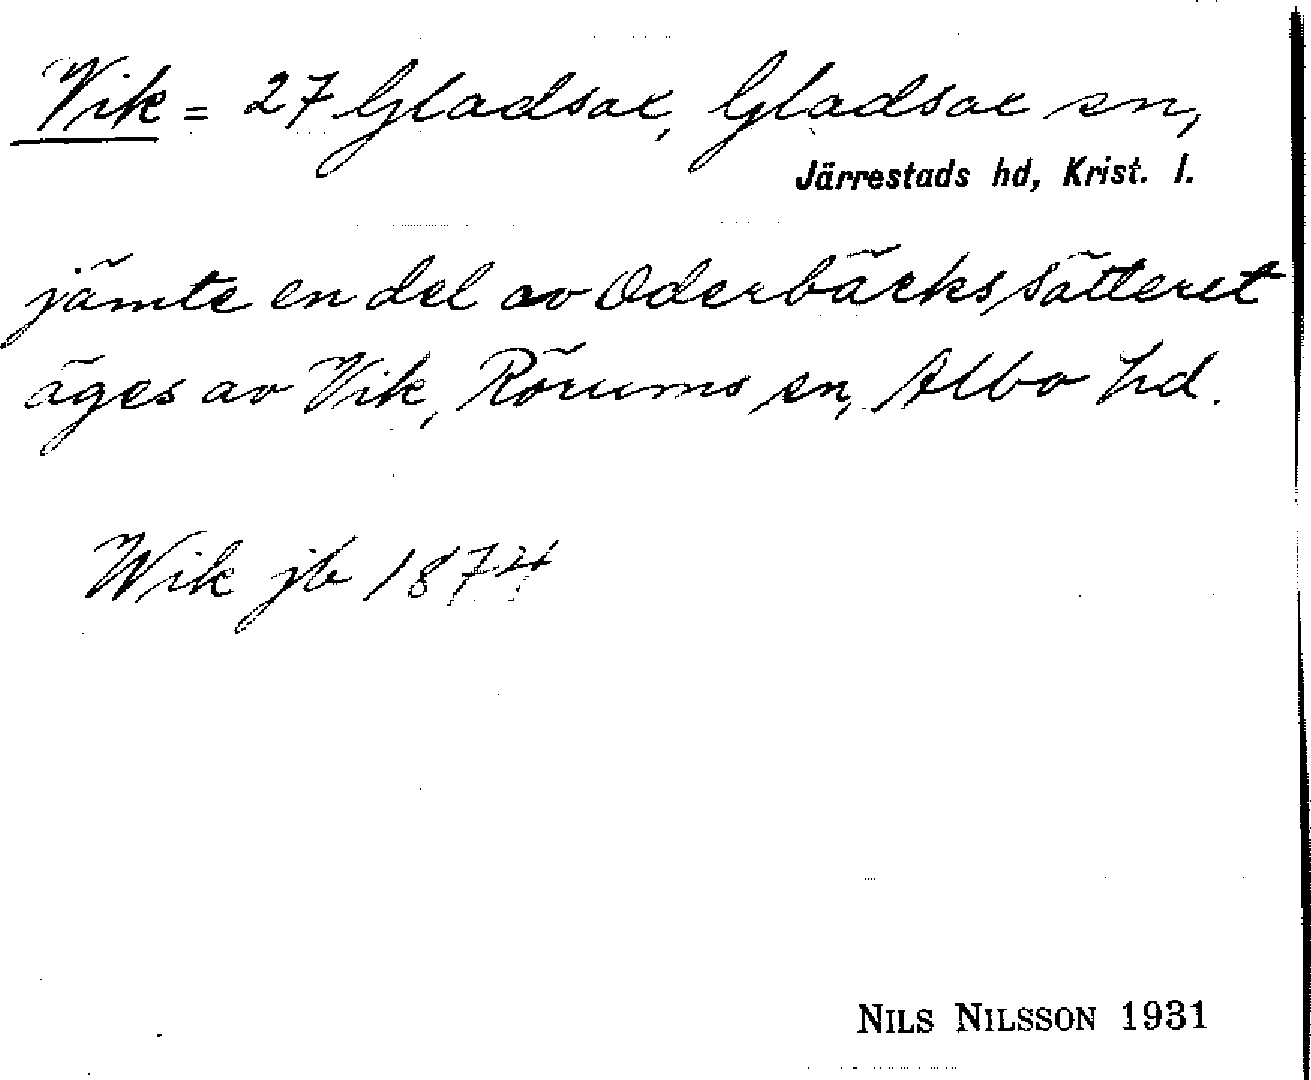 Vik = 27 Gladsax, Gladsax sn,
Järrestads hd, Krist. l.
jämte en del av Oderbäckssätteret
äges av Vik, Rörums sn, Albo hd.
Wik jb 1874
NILS NILSSON 1931